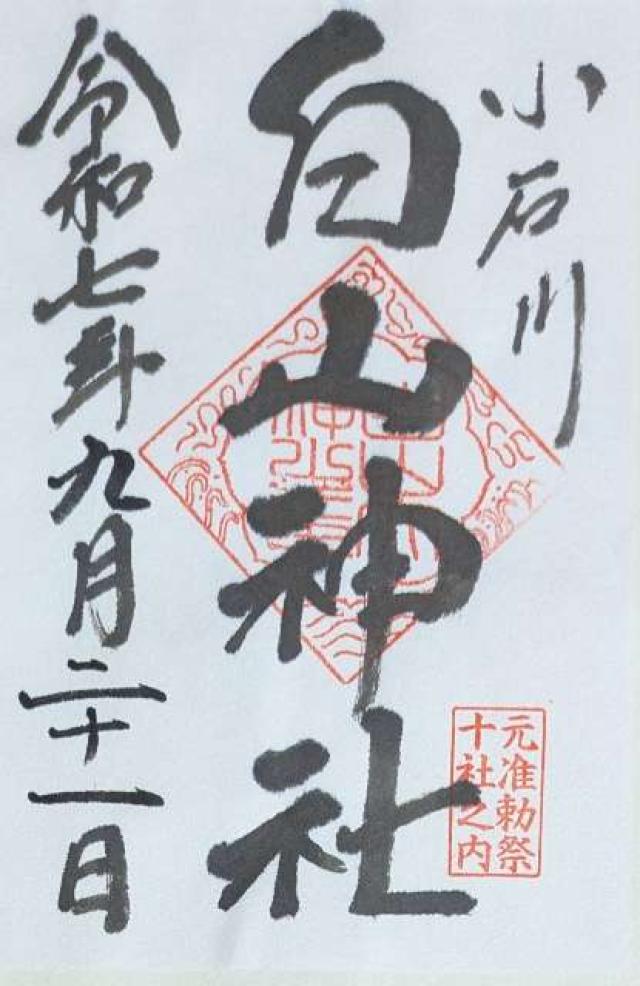 小石川
白山神社
元准勅祭
十社之内
令和七年九月二十一日